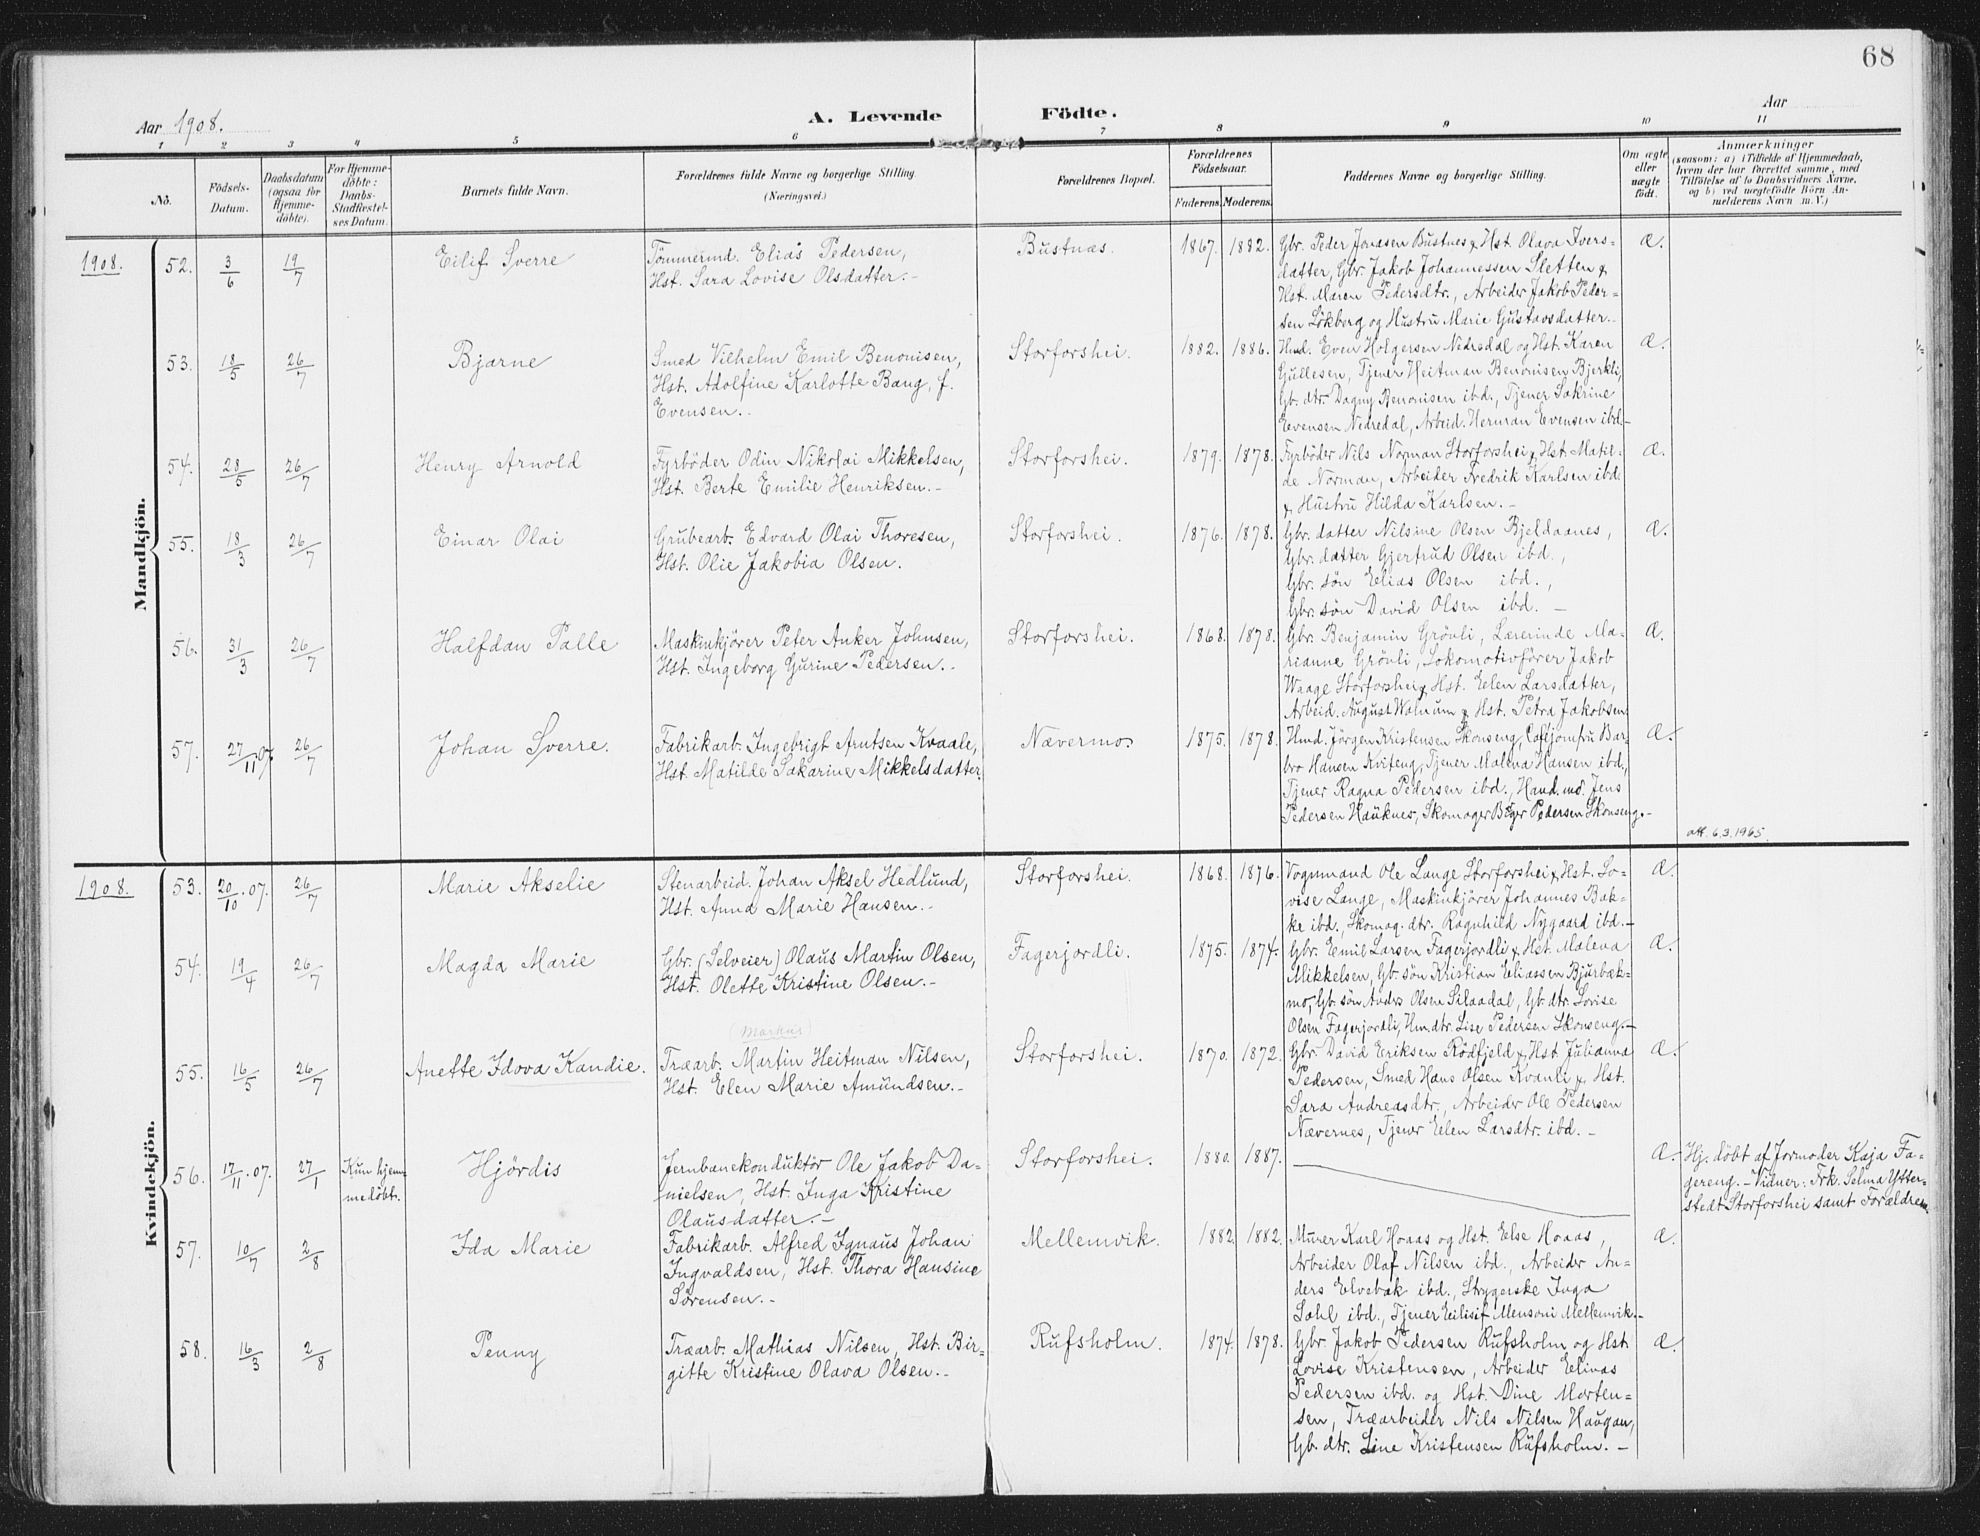 68
Aar 1908.
A. Levende Födte.
Aar
1 2 3 4 5 6 7 8 9 10 11
No.
Födsels-
Datum.
Daabsdatum
(ogsaa for
Hjemme-
döbte).
For Hjemme-
döbte:
Daabs-
Stadfæstel-
ses Datum.
Barnets fulde Navn.
Forældrenes fulde Navne og borgerlige Stilling
(Næringsvei.)
Forældrenes Bopæl.
Forældrenes
Födselsaar.
Faderens. Moderens.
Faddernes Navne og borgerlige Stilling.
Om ægte
eller
uægte
födt.
Anmærkninger
(saasom: a) i Tilfælde af Hjemmedaab,
hvem der har forrettet samme, med
Tilföielse af to Daabsvidners Navne,
og b) ved uægtefödte Börn An-
melderens Navn m. V.)
Mandkjön.
1908. 52. 3/6 19/7 Eilif Sverre
Tömmermd. Elias Pedersen,
Hst. Sara Lovise Olsdatter.-
Bustnæs. 1867. 1882.
Gbr. Peder Jonasen Bustnes & Hst. Olava Ivers-
datter, Gbr. Jakob Johannessen Sletten &
Hst. Maren Pedersdtr., Arbeider Jakob Peder-
sen Lökberg og Hustru Marie Gustavsdatter.-
Æ.
53. 18/5 26/7 Bjarne
Smed Vilhelm Emil Benonisen,
Hst. Adolfine Karlotte Bang, f.
Evensen..
Storforshei. 1882. 1886.
Hmd. Even Holgersen Nedredal og Hst. Karen
Gullesen, Tjener Heitman Benonisen Bjerkli,
Gb. dtr. Dagny Benonisen ibd., Tjener Sakrine
Evensen Nedredal, Arbeid. Herman Evensen ibd-
Æ.
54. 28/5 26/7 Henry Arnold
Fyrböder Odin Nikolai Mikkelsen,
Hst. Berte Emilie Henriksen.-
Storforshei. 1879. 1878.
Fyrböder Nils Norman Storforshei & Hst. Matil-
de Norman, Arbeider Fredrik Karlsen ibd.
& Hustru Hilda Karlsen.-
Æ.
55. 18/3 26/7 Einar Olai
Grubearb. Edvard Olai Thoresen,
Hst. Olie Jakobia Olsen.
Storforshei. 1876. 1878.
Gbr. datter Nilsine Olsen Bjeldaanes,
Gbr. datter Gjertrud Olsen ibd.,
Gbr. sön Elias Olsen ibd.,
Gbr. sön David Olsen ibd. -
Æ.
56. 31/3 26/7 Halfdan Palle
Maskinkjörer Peter Anker Johnsen,
Hst. Ingeborg Gurine Pedersen.-
Storforshei. 1868. 1878.
Gbr. Benjamin Grövli, Lærerinde Ma-
rianne Grövli, Lokomotivförer Jakob
Waage Storforshei & Hst. Elen Larsdatter,
Arbeid. August Walnum & Hst. Petra Jakobsen
Æ.
57. 27/11 07. 26/7 Johan Sverre.
Fabrikarb. Ingebrigt Arntsen Kvaale,
Hst. Matilde Sakarine Mikkelsdatter
Nævermo. 1875. 1878.
Hmd. Jörgen Kristensen Skonseng, Cafejomfru Bar-
bro Hansen Kviteng, Tjener Malena Hansen ibd.,
Tjener Ragna Pedersen ibd., Hand. md. Jens
Pedersen Hauknes, Skomager Pedersen Skonseng.-
Æ.
att. 6.3.1965.
Kvindekjön.
1908. 53. 20/10.07. 26/7 Marie Akselie
Stenarbeid. Johan Aksel Hedlund,
Hst. Anna Marie Hansen.-
Storforshei. 1868. 1876.
Vognmand Ole Lange Storforshei & Hst. Lo-
vise Lange, Maskinkjörer Johannes Bak-
ke ibd., Skomag. dtr. Ragnhild Nygaard ibd.-
Æ.
54. 19/4 26/7 Magda Marie
Gbr. (Selveier) Olaus Martin Olsen,
Hst. Olette Kristine Olsen.-
Fagerjordli. 1875. 1874.
Gbr. Emil Larsen Fagerjordli & Hst. Malena
Mikkelsen, Gb. sön Kristian Eliassen Bjurbæk-
mo, Gb. sön Anders Olsen Silaadal, Gb. dtr. Lovise
Olsen Fagerjordli, Hm. dtr. Lise Pedersen Skonseng.-
Æ.
(Markus)
55. 16/5 26/7 Anette Idova Kandie.
Træarb. Martin Heitman Nilsen,
Hst. Elen Marie Amundsen.-
Storforshei. 1870. 1872.
Gbr. David Eriksen Rödfjeld & Hst. Julianna
Pedersen, Smed Hans Olsen Kvanli & Hst.
Sara Andreasdtr., Arbeider Ole Pedersen
Nævernes, Tjener Elen Larsdtr. ibd. -
Æ.
56. 17/11.07. 27/1 Kun hjem-
medöbt. Hjördis
Jernbanekonduktör Ole Jakob Da-
nielsen, Hst. Inga Kristine
Olausdatter.-
Storforshei. 1880. 1887.
Æ.
Hj. döbt af Jormoder Kaja Fa-
gereng.- Vidner: Frk. Selma Ytter-
stedt Storforshei samt Forældren
57. 10/7 2/8 Ida Marie
Fabrikarb. Alfred Ignaus Johan
Ingvaldsen, Hst. Thora Hansine
Sörensen.-
Mellemvik. 1882 1882.
Murer Karl Hoaas og Hst. Else Hoaas,
Arbeider Olaf Nilsen ibd., Arbeider An-
ders Elvebak ibd., Strygerske Inga
Dahl ibd., Tjener Mellemvik.-
Æ.
58. 16/3 2/8 Penny
Træarb. Mathias Nilsen, Hst. Bir-
gitte Kristine Olava Olsen.-
Rufsholm. 1874. 1878.
Gbr. Jakob Pedersen Rufsholm og Hst.
Lovise Kristensen, Arbeider Elinas
Pedersen ibd. og Hst. Dine Morten-
sen, Træarbeider Nils Nilsen Haugan,
Gb. dtr. Line Kristensen Rufsholm. -
Æ.